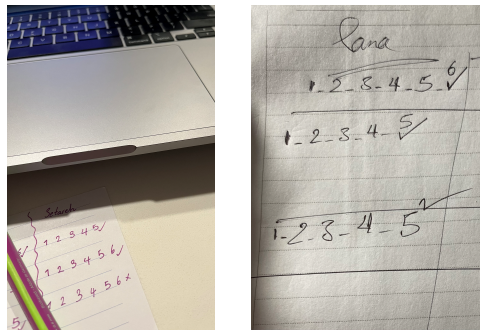 Setareh
1 2 3 4 5 ✓
1 2 3 4 5 6 ✓
1 2 3 4 5 6 x
5
Lana
1-2-3-4-5-6 ✓
1-2-3-4-5 ✓
1-2-3-4-5 ✓